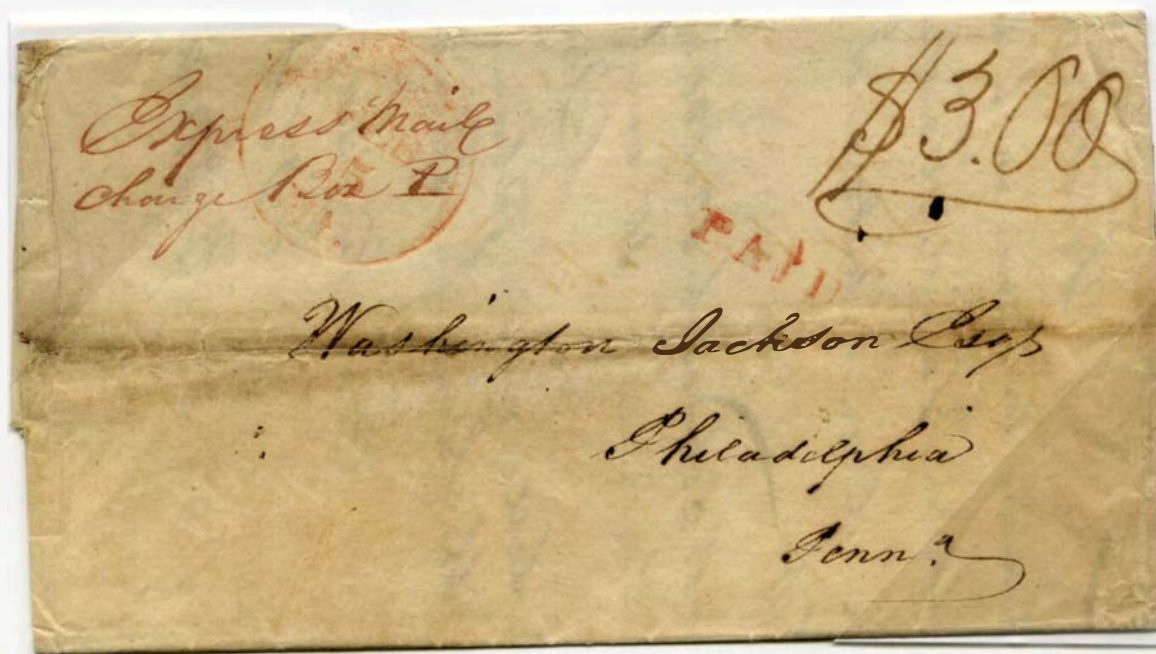 Express Mail
charge Box P
$3.00
PAID
Washington Jackson Esqr
Philadelphia
Penn.a